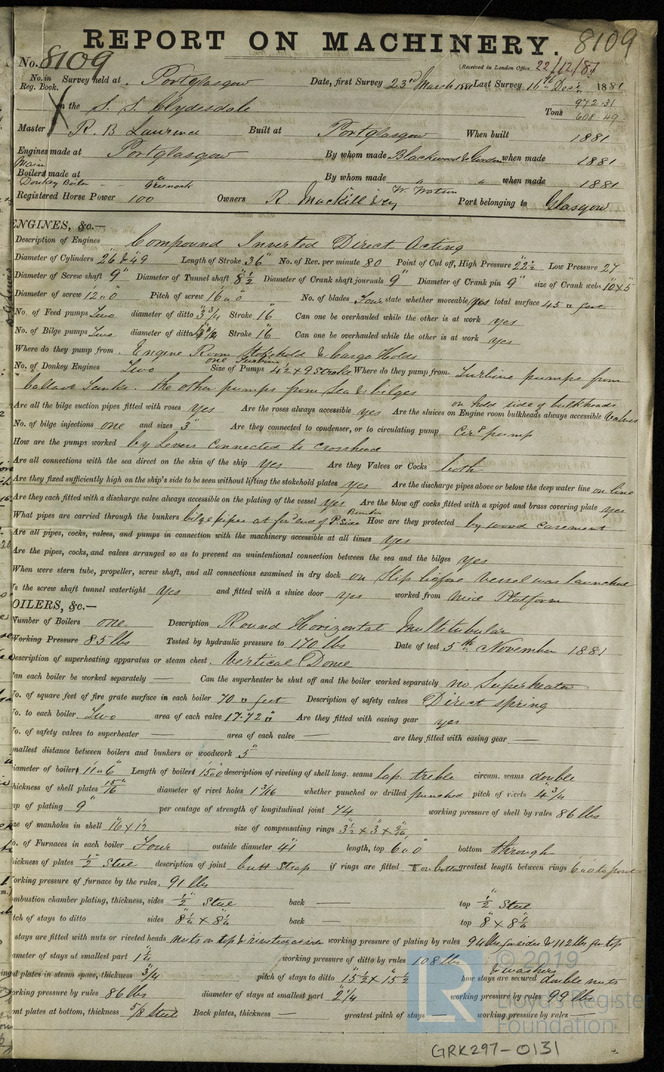 REPORT ON MACHINERY. 8109
No. 8109
Received in London Office, 22/12/81
No. in Reg. Book. Survey held at Portglasgow Date, first Survey 23rd March 1881 Last Survey 16th Decr 1881
on the S. S. Clydesdale Tons 972.31 608.49
Master R. B. Lawrence Built at Portglasgow When built 1881
Engines made at Portglasgow By whom made Blackwood & Gordon when made 1881
Main Boilers made at " By whom made " when made 1881
Donkey Boiler - - Greenock W. Watson
Registered Horse Power 100 Owners R. Mackill & Co Port belonging to Glasgow
ENGINES, &c.—
Description of Engines Compound Inverted Direct Acting
Diameter of Cylinders 26" & 49 Length of Stroke 36" No. of Rev. per minute 80 Point of Cut off, High Pressure 22½ Low Pressure 27
Diameter of Screw shaft 9" Diameter of Tunnel shaft 8½ Diameter of Crank shaft journals 9" Diameter of Crank pin 9" size of Crank webs 10x5
Diameter of screw 12=0 Pitch of screw 16=0 No. of blades four state whether moveable yes total surface 45 □ feet
No. of Feed pumps Two diameter of ditto 3¾ Stroke 16 Can one be overhauled while the other is at work yes
No. of Bilge pumps Two diameter of ditto 3½ Stroke 16 Can one be overhauled while the other is at work yes
Where do they pump from Engine Room Stokehold & Cargo Holds
No. of Donkey Engines Two one Turbine Size of Pumps 4½ x 9 Stroke Where do they pump from Turbine pumps from
ballast Tanks. the other pumps from Sea & bilges
Are all the bilge suction pipes fitted with roses yes Are the roses always accessible yes Are the sluices on Engine room bulkheads always accessible on hold side of bulkheads Valves
No. of bilge injections one and sizes 3" Are they connected to condenser, or to circulating pump Cirg pump
How are the pumps worked by Levers connected to crosshead
Are all connections with the sea direct on the skin of the ship yes Are they Valves or Cocks both
Are they fixed sufficiently high on the ship's side to be seen without lifting the stokehold plates yes Are the discharge pipes above or below the deep water line on line
Are they each fitted with a discharge valve always accessible on the plating of the vessel yes Are the blow off cocks fitted with a spigot and brass covering plate yes
What pipes are carried through the bunkers bilge pipes at for'd end of P. Side Bunker How are they protected by wood casement
Are all pipes, cocks, valves, and pumps in connection with the machinery accessible at all times yes
Are the pipes, cocks, and valves arranged so as to prevent an unintentional connection between the sea and the bilges yes
When were stern tube, propeller, screw shaft, and all connections examined in dry dock on Slip before vessel was launched
Is the screw shaft tunnel watertight yes and fitted with a sluice door yes worked from Mid Platform
BOILERS, &c.—
Number of Boilers one Description Round Horizontal Multitubular
Working Pressure 85 lbs Tested by hydraulic pressure to 170 lbs Date of test 5th November 1881
Description of superheating apparatus or steam chest Vertical Dome
Can each boiler be worked separately — Can the superheater be shut off and the boiler worked separately no Superheater
No. of square feet of fire grate surface in each boiler 70 □ feet Description of safety valves Direct spring
No. to each boiler Two area of each valve 17.72 □ Are they fitted with easing gear yes
No. of safety valves to superheater — area of each valve — are they fitted with easing gear —
Smallest distance between boilers and bunkers or woodwork 5"
Diameter of boilers 11=6" Length of boilers 15=0 description of riveting of shell long. seams lap treble circum. seams double
Thickness of shell plates diameter of rivet holes 1 3/16 whether punched or drilled punched pitch of rivets 4¾
Lap of plating 9" per centage of strength of longitudinal joint 74 working pressure of shell by rules 86 lbs
Size of manholes in shell 16 x 12 size of compensating rings 3½ x 3 x
No. of Furnaces in each boiler Four outside diameter 41 length, top 6=0 bottom through
Thickness of plates ½ Steel description of joint butt strap if rings are fitted T on bottom greatest length between rings
Working pressure of furnace by the rules 91 lbs
Combustion chamber plating, thickness, sides ½ Steel back — top ½ Steel
Pitch of stays to ditto sides 8¼ x 8¼ back — top 8 x 8¼
If stays are fitted with nuts or riveted heads nuts on top & riveted at side working pressure of plating by rules 94 lbs for sides & 112 lbs for top
Diameter of stays at smallest part 1¼ working pressure of ditto by rules 108 lbs
End plates in steam space, thickness ¾ pitch of stays to ditto 15½ x 15½ how stays are secured double nuts & washers
Working pressure by rules 86 lbs diameter of stays at smallest part 2¼ working pressure by rules 99 lbs
Front plates at bottom, thickness ⅝ Steel Back plates, thickness — greatest pitch of stays — working pressure by rules —
© 2019
Lloyd's Register
Foundation
GRK297-0131